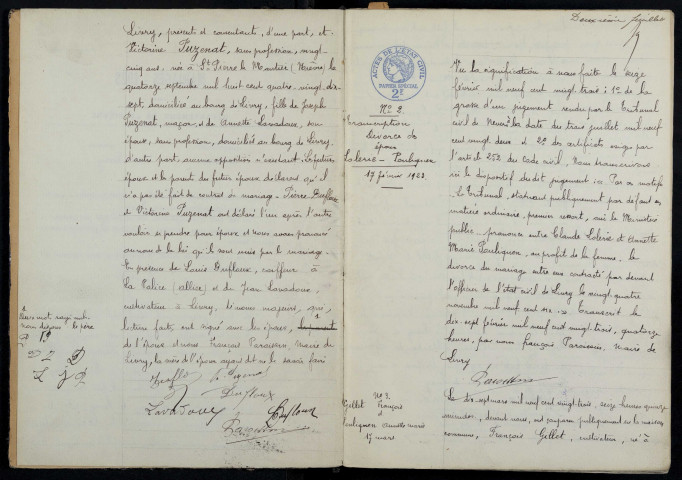 Livry, présent et consentant, d'une part, et
Victorine Puzenat, sans profession, vingt-
cinq ans, née à St Pierre le Moutier (Nièvre) le
quatorze septembre mil huit cent quatre-vingt dix-
sept, domiciliée au bourg de Livry, fille de Joseph
Puzenat, maçon, et de Annette Lavadoux, son
épouse, sans profession, domiciliés au bourg de Livry
d'autre part; aucune opposition n'existant. Les futurs
époux et le parent du futur époux déclarent qu'il
n'a pas été fait de contrat de mariage. Pierre Dufloux
et Victorine Puzenat ont déclaré l'un après l'autre
vouloir se prendre pour époux et nous avons prononcé
au nom de la loi qu'ils sont unis par le mariage.
En présence de Louis Dufloux, coiffeur à
La Palice (allier) et de Jean Lavadoux,
cultivateur à Livry, témoins majeurs, qui,
lecture faite, ont signé avec les époux,
de l'époux et nous François Paroissien, maire de
Livry, la mère de l'époux ayant dit ne le savoir faire
Dufloux
Lavadoux
Dufloux
Deuxième feuillet
ACTES DE L'ÉTAT CIVIL
PAPIER SPÉCIAL
2F
No 2
Transcription
Divorce de
époux
Lalerie - Poulignon
17 février 1923
Vu la signification à nous faite le seize
février mil neuf cent vingt trois; 1o de la
grosse d'un jugement rendu par le Tribunal
civil de Nevers la date des trois juillet mil neuf
cent vingt deux et 2o des certificats exigés par
l'article 252 du Code civil. Nous transcrivons
ici le dispositif du dit jugement: Par ces motifs
Le Tribunal, statuant publiquement par défaut en
matière ordinaire, premier ressort, ouï le Ministère
public, prononce entre Claude Lalerie et Annette
Marie Poulignon, au profit de la femme, le
divorce du mariage entre eux contracté par devant
l'officier de l'état civil de Livry le vingt quatre
novembre mil neuf cent six. Transcrit le
dix-sept février mil neuf cent vingt trois, quatorze
heures, par nous François Paroissien, maire de
Livry
No 3
Gillet François
et
Poulignon Annette Marie
17 mars
Le dix-sept mars mil neuf cent vingt trois, seize heures quinze
minutes, devant nous, ont comparu publiquement en la maison
commune, François Gillet, cultivateur, né à